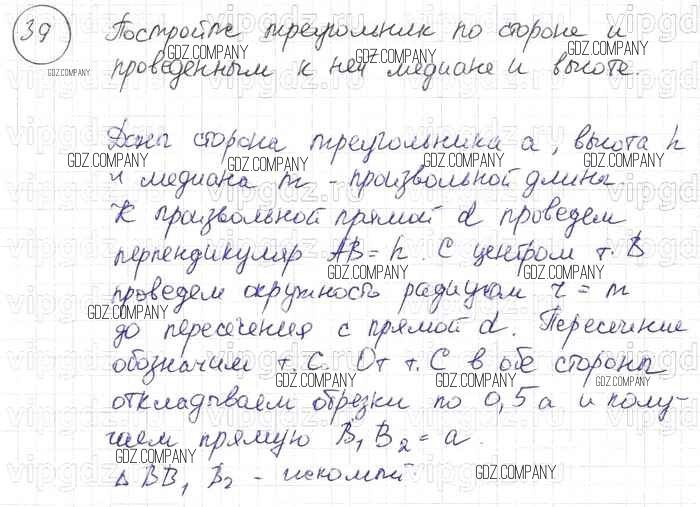 39 Постройте треугольник по стороне и
проведенным к ней медиане и высоте.
Даны сторона треугольника a, высота h
и медиана m - произвольной длины.
К произвольной прямой d проведем
перпендикуляр AB = h. С центром т. B
проведем окружность радиусом r = m
до пересечения с прямой d. Пересечение
обозначим т. C. От т. C в обе стороны
откладываем отрезки по 0,5 a и полу-
чаем прямую B₁B₂ = a.
Δ BB₁ B₂ - искомый.